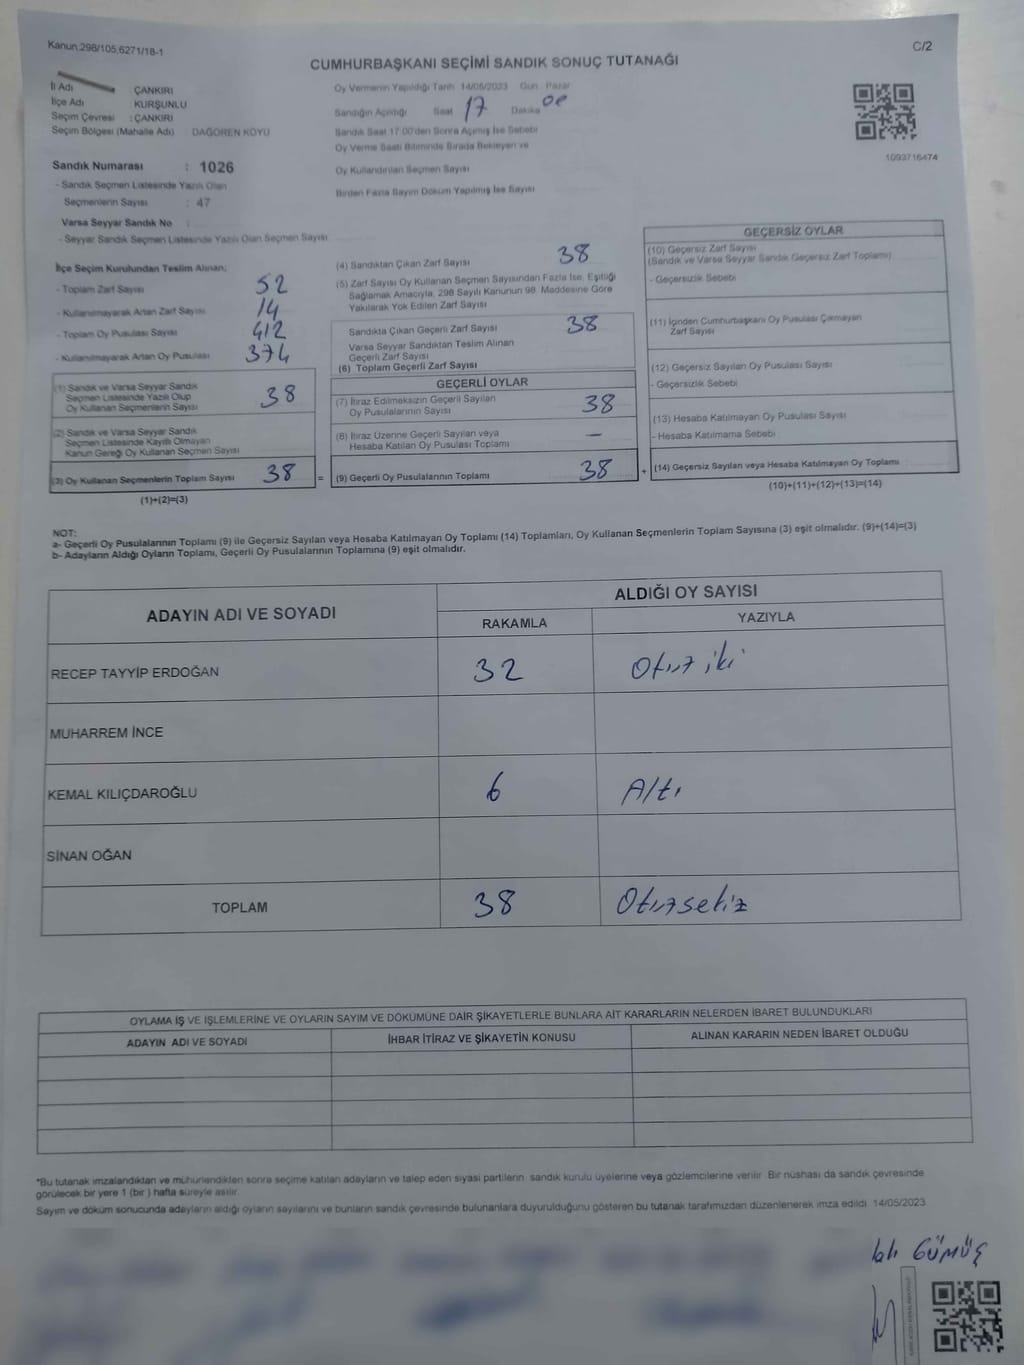 Kanun.298/105,6271/18-1
C/2
CUMHURBAŞKANI SEÇİMİ SANDIK SONUÇ TUTANAĞI
İl Adı ÇANKIRI
İlçe Adı KURŞUNLU
Seçim Çevresi : ÇANKIRI
Seçim Bölgesi (Mahalle Adı) DAĞÖREN KÖYÜ
Oy Vermenin Yapıldığı Tarih 14/05/2023 Gün Pazar
Sandığın Açıldığı Saat 17 Dakika 00
Sandık Saat 17:00'den Sonra Açılmış İse Sebebi
Oy Verme Saati Bitiminde Sırada Bekleyen ve
Oy Kullandırılan Seçmen Sayısı
Birden Fazla Sayım Döküm Yapılmış İse Sayısı
1093716474
Sandık Numarası : 1026
- Sandık Seçmen Listesinde Yazılı Olan
Seçmenlerin Sayısı : 47
Varsa Seyyar Sandık No
- Seyyar Sandık Seçmen Listesinde Yazılı Olan Seçmen Sayısı
İlçe Seçim Kurulundan Teslim Alınan;
- Toplam Zarf Sayısı 52
- Kullanılmayarak Artan Zarf Sayısı 14
- Toplam Oy Pusulası Sayısı 412
- Kullanılmayarak Artan Oy Pusulası 374
(1) Sandık ve Varsa Seyyar Sandık
Seçmen Listesinde Yazılı Olup
Oy Kullanan Seçmenlerin Sayısı 38
(2) Sandık ve Varsa Seyyar Sandık
Seçmen Listesinde Kayıtlı Olmayan
Kanun Gereği Oy Kullanan Seçmen Sayısı
(3) Oy Kullanan Seçmenlerin Toplam Sayısı 38 =
(1)+(2)=(3)
(4) Sandıktan Çıkan Zarf Sayısı 38
(5) Zarf Sayısı Oy Kullanan Seçmen Sayısından Fazla İse, Eşitliği
Sağlamak Amacıyla, 298 Sayılı Kanunun 98. Maddesine Göre
Yakılarak Yok Edilen Zarf Sayısı
Sandıkta Çıkan Geçerli Zarf Sayısı 38
Varsa Seyyar Sandıktan Teslim Alınan
Geçerli Zarf Sayısı
(6) Toplam Geçerli Zarf Sayısı
GEÇERLİ OYLAR
(7) İtiraz Edilmeksizin Geçerli Sayılan
Oy Pusulalarının Sayısı 38
(8) İtiraz Üzerine Geçerli Sayılan veya
Hesaba Katılan Oy Pusulası Toplamı —
(9) Geçerli Oy Pusulalarının Toplamı 38 +
GEÇERSİZ OYLAR
(10) Geçersiz Zarf Sayısı
(Sandık ve Varsa Seyyar Sandık Geçersiz Zarf Toplamı)
- Geçersizlik Sebebi
(11) İçinden Cumhurbaşkanı Oy Pusulası Çıkmayan
Zarf Sayısı
(12) Geçersiz Sayılan Oy Pusulası Sayısı
- Geçersizlik Sebebi
(13) Hesaba Katılmayan Oy Pusulası Sayısı
- Hesaba Katılmama Sebebi
(14) Geçersiz Sayılan veya Hesaba Katılmayan Oy Toplamı
(10)+(11)+(12)+(13)=(14)
NOT:
a- Geçerli Oy Pusulalarının Toplamı (9) ile Geçersiz Sayılan veya Hesaba Katılmayan Oy Toplamı (14) Toplamları, Oy Kullanan Seçmenlerin Toplam Sayısına (3) eşit olmalıdır. (9)+(14)=(3)
b- Adayların Aldığı Oyların Toplamı, Geçerli Oy Pusulalarının Toplamına (9) eşit olmalıdır.
ADAYIN ADI VE SOYADI
ALDIĞI OY SAYISI
RAKAMLA YAZIYLA
RECEP TAYYİP ERDOĞAN 32 Otuz iki
MUHARREM İNCE
KEMAL KILIÇDAROĞLU 6 Altı
SİNAN OĞAN
TOPLAM 38 Otuzsekiz
OYLAMA İŞ VE İŞLEMLERİNE VE OYLARIN SAYIM VE DÖKÜMÜNE DAİR ŞİKAYETLERLE BUNLARA AİT KARARLARIN NELERDEN İBARET BULUNDUKLARI
ADAYIN ADI VE SOYADI İHBAR İTİRAZ VE ŞİKAYETİN KONUSU ALINAN KARARIN NEDEN İBARET OLDUĞU
*Bu tutanak imzalandıktan ve mühürlendikten sonra seçime katılan adayların ve talep eden siyasi partilerin sandık kurulu üyelerine veya gözlemcilerine verilir. Bir nüshası da sandık çevresinde
görülecek bir yere 1 (bir ) hafta süreyle asılır.
Sayım ve döküm sonucunda adayların aldığı oyların sayılarını ve bunların sandık çevresinde bulunanlara duyurulduğunu gösteren bu tutanak tarafımızdan düzenlenerek imza edildi. 14/05/2023
GÜMÜŞ